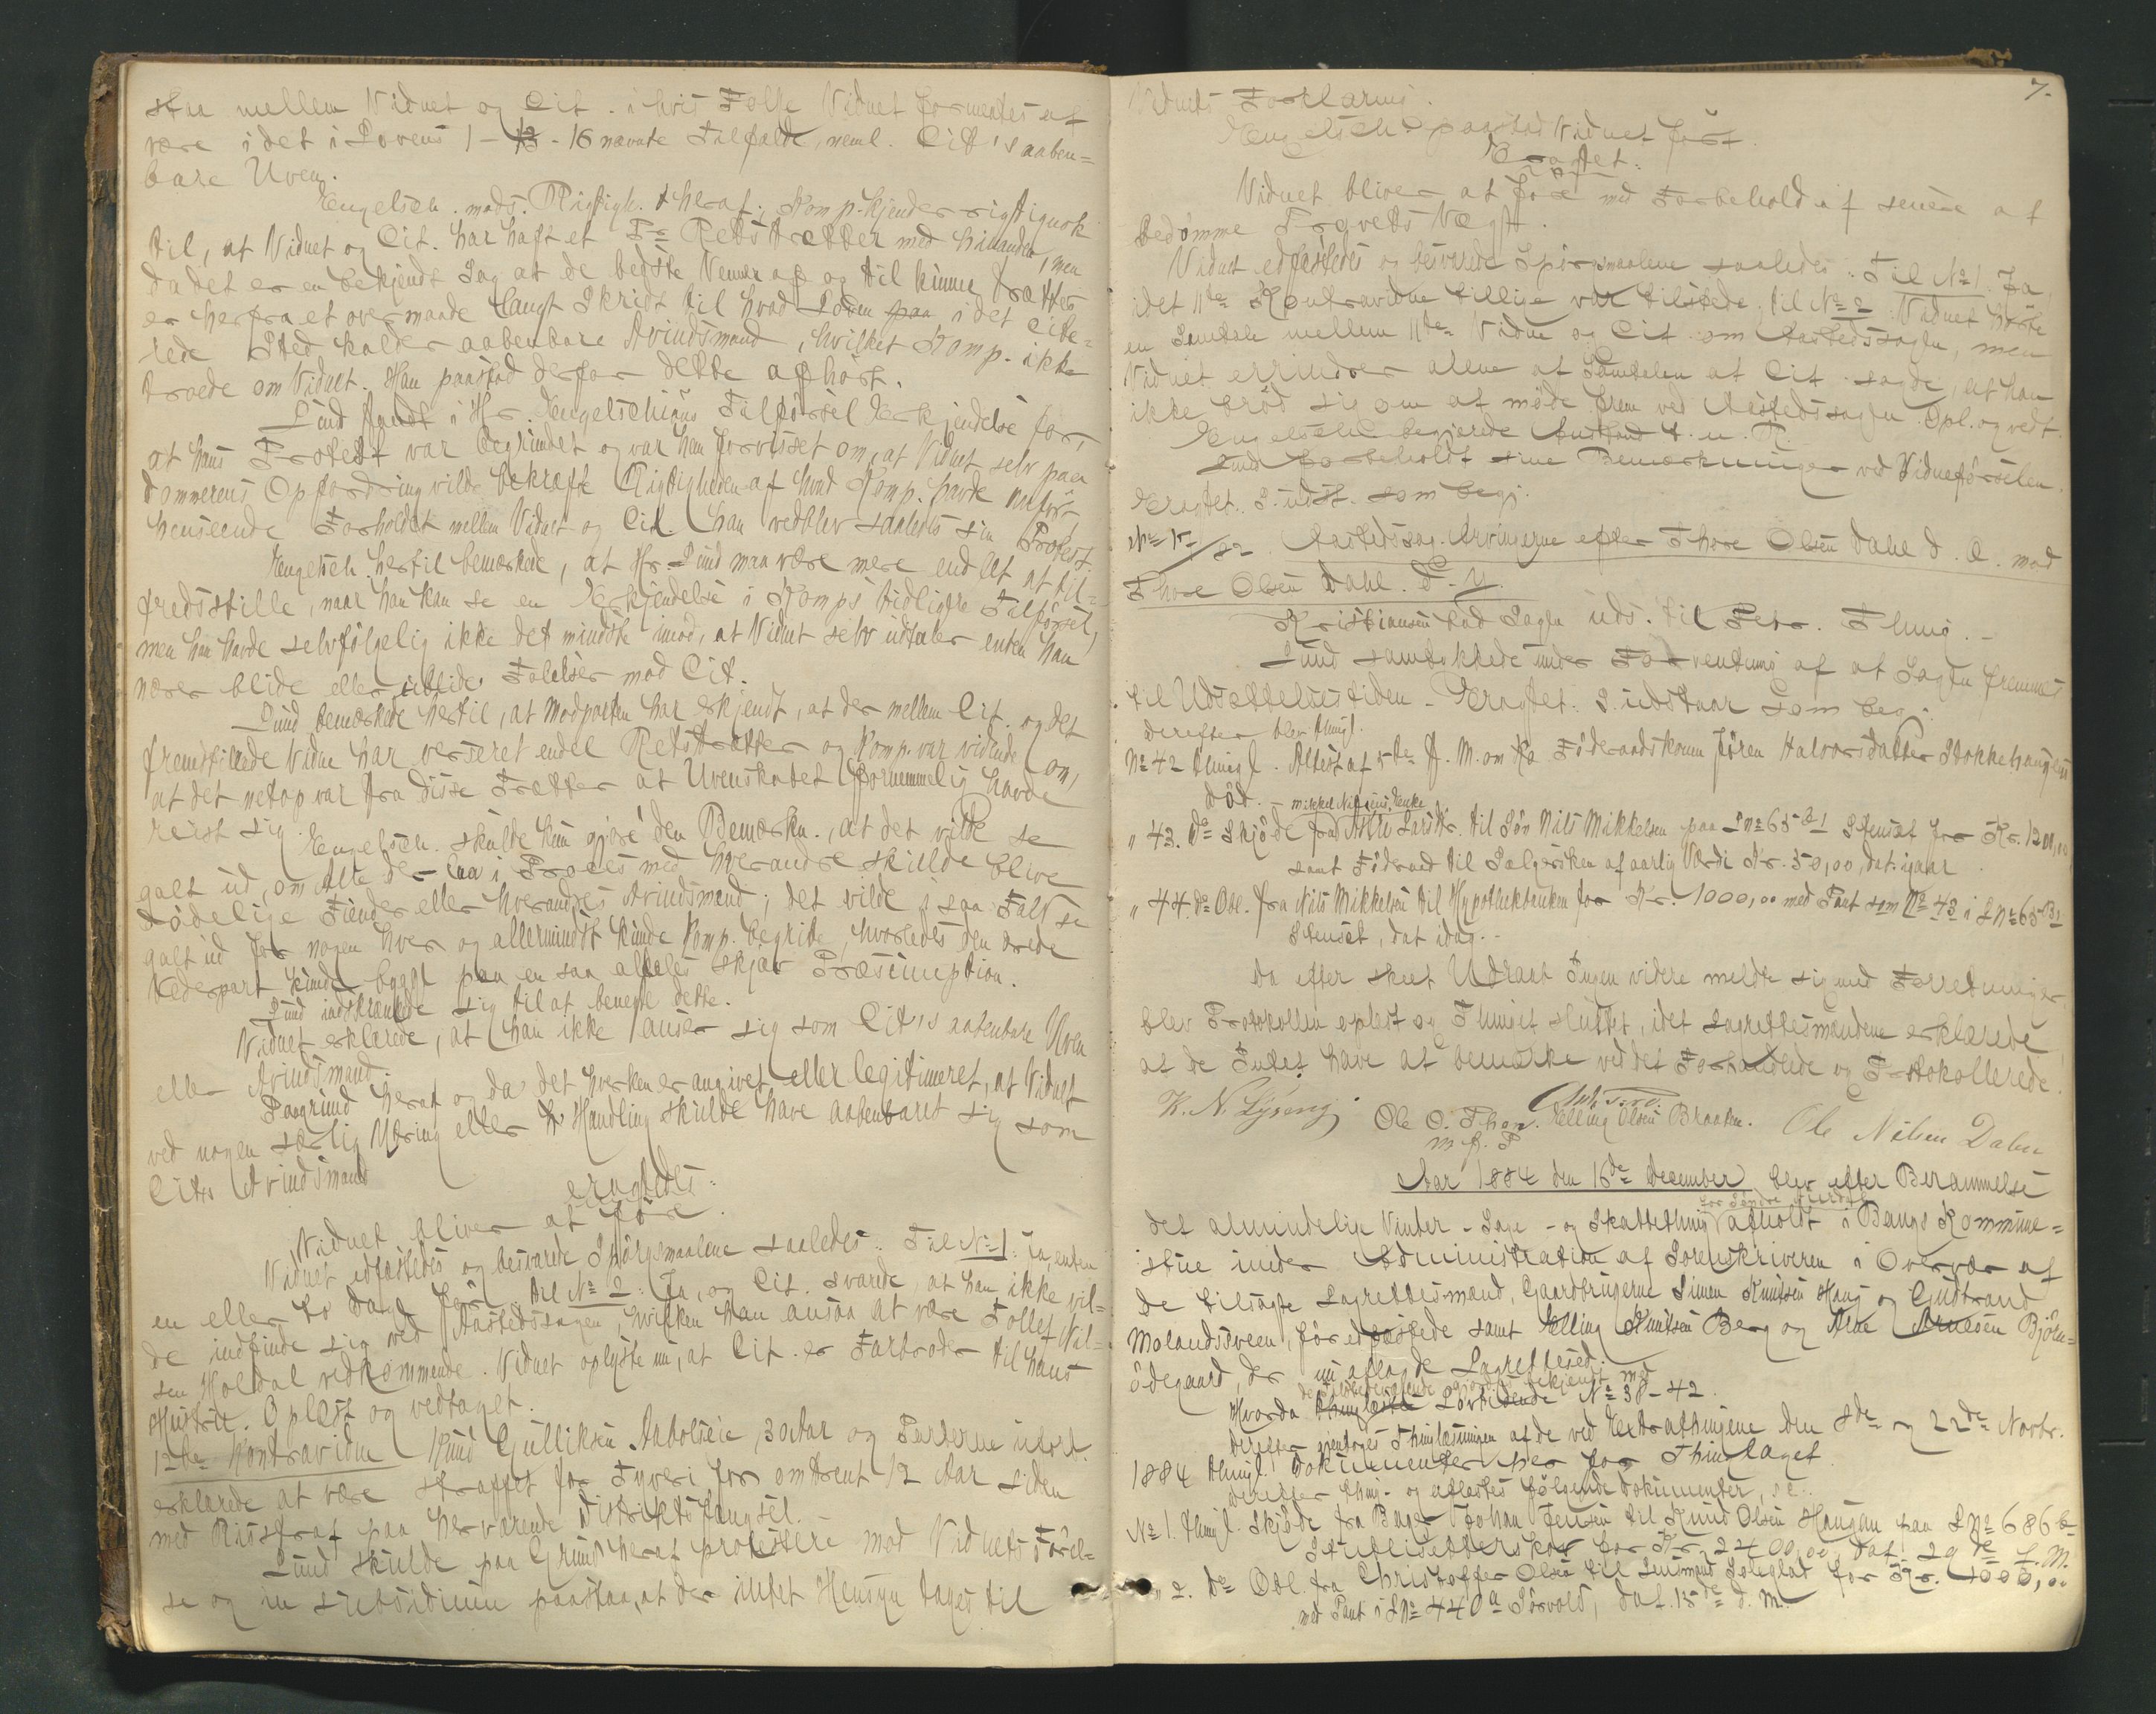 staa mellem Vidnet og Cit. i hvis Følge Vidnet formentes at
være i det i Lovens 1-13-16 nævnte Tilfælde, neml. Cit's aaben=
bare Uven.
Engelsch. mods. Rigtigh. heraf; Komp. kjender rigtignok
til, at Vidnet og Cit. har haft et Par Retstrætter med hinanden, men
da det er en bekjendt Sag at de bedste Venner af og til kunne trættes
er herfra et overmaade langt Skridt til hvad Loven paa i det cite=
rede Sted kalder aabenbare Avindsmand, hvilket Komp. ikke
troede om Vidnet. Han paastod derfor dette afhørt.
Lund fandt i Hr. Engelschiøns Tilførsel Erkjendelse for,
at hans Protest var begrundet og var han forvisset om, at Vidnet selv paa
Dommerens Opfordring vilde bekræfte Rigtigheden af hvad Komp. havde anført
henseende Forholdet mellem Vidnet og Cit. Han vedblev saaledes sin Protest.
Engelsch. hertil bemærkede, at Hr. Lund maa være mere end let at til=
fredsstille, naar han kan se en Erkjendelse i Komps tidligere Tilførsel,
men han havde selvfølgelig ikke det mindste imod, at Vidnet selv udtaler enten han
nærer blide eller ublide Følelser mod Cit.
Lund bemærkede hertil, at Modparten har erkjendt, at der mellem Cit. og det
fremstillede Vidne har verseret endel Retstrætter og Komp. var vidende om,
at det netop var fra disse Trætter at Uvenskabet fornemmelig havde
reist sig.
Engelsch. skulde kun gjøre den Bemærkn., at det vilde se
galt ud, om Alle der laa i Proces med hverandre skulde blive
dødelige Fiender eller hverandres Avindsmænd; det vilde i saa Fald se
galt ud for nogen hver og allermindst kunde Komp. begribe, hvorledes den ærede
Vederpart kunde bygge paa en saa aldeles skjær Præsumption.
Lund indskrænkede sig til at benegte dette.
Vidnet erklærede, at han ikke anser sig som Cit's aabenbare Uven
eller Avindsmand.
Paagrund heraf og da det hverken er angivet eller legitimeret, at Vidnet
ved nogen særlig Ytring eller Handling skulde have aabenbaret sig som
Cits Avindsmand
eragtedes:
Vidnet bliver at føre.
Vidnet edfæstedes og besvarede Spørgsmaalene saaledes: Til No 1: Ja, enten
en eller to Dage før. Til No 2: Ja, og Cit. svarede, at han ikke vil=
de indfinde sig ved Aastedssagen, hvilken han ansaa at være Tollef Nil=
sen Holdal vedkommende. Vidnet oplyste nu, at Cit. er Farbroder til hans
Hustru. Oplæst og vedtaget.
12te Kontravidne Knud Gulliksen Aabolseie, 30 Aar og Parterne uvedk.
erklærede at være straffet for Tyveri for omtrent 12 Aar siden
med Risstraf paa herværende Distriktsfængsel.
Lund skulde paa Grund heraf protestere mod Vidnets Førel=
se og in subsidium paastaa, at der intet Hensyn tages til
7.
Vidnets Forklaring.
Engelsch. paastod Vidnet ført.
Eragtet:
Vidnet bliver at føre med Forbehold af senere at
bedømme Provets Vægt.
Vidnet edfæstedes og besvarede Spørgsmaalene saaledes: Til No 1. Ja,
idet 11te Kontravidne tillige var tilstede. Til No 2 Vidnet hørte
en Samtale mellem 11te Vidne og Cit om Aastedssagen, men
Vidnet erindrer alene af Samtalen at Cit. sagde, at han
ikke brød sig om at møde frem ved Aastedssagen. Opl. og vedt.
Engelsch. begjærede Anstand t. n. R.
Lund forbeholdt sine Bemærkninger ved Vidneførselen.
Eragtet. S. udst. som begj.
No 15/82 Aastedssag. Arvingerne efter Thore Olsen Dahl d. Æ. mod
Thore Olsen Dahl. d. Y.
Kristiansen bad Sagen uds. til Febr. Thing. -
Lund samtykkede under Forventning af at Sagen fremmes
til Udsættelsestiden - Eragtet: S. udstaar som begj.
Derefter blev thingl.
No 42 thingl. Attest af 5te d. M. om Ko Føderaadskone Jøren Halvorsdatter Stokkehaugens
Død. -
Mikkel Nilsens Enke
" 43. do Skjøde fra Larsdtr. til Søn Nils Mikkelsen paa LNo 65 b1 Stenset for Kr. 1200,00
samt Føderaad til Sælgersken af aarlig Værdi Kr. 50,00, dat. igaar
" 44. do Obl. fra Nils Mikkelsen til Hypothekbanken for Kr. 1000,00 med Pant som No 43 i LNo 65 b1
Stenset, dat idag. -
Da efter skeet Udraab Ingen videre meldte sig med Forretninger,
blev Protokollen oplæst og Thinget sluttet, idet Lagrettesmændene erklærede
at de Intet have at bemærke ved det Forhandlede og Protokollerede.
K. N. Lysseng Ole O. Thon. Elling Olsen Braaten. Ole Nilsen Dalen
m. p. P
Aar 1884 den 16de December blev efter Berammelse
for Søndre Aurdal
det almindelige Vinter- Sage- og Skattething afholdt i Bangs Kommune=
stue under Administration af Sorenskriveren i Overvær af
de tilsagte Lagrettesmænd, Gaardbrugerne Simen Knutsen Haug og Gudbrand
Molandsveen, før edfæstede samt Elling Knutsen Berg og Arne Arnesen Bjøln=
ødegaard, der nu aflagde Lagrettesed.
de Tilstedeværende gjordes bekjendt med
Hvorda thinglæstes Lovtidende No 38-42.
Derefter gjentoges Thinglæsningen af de ved Extrathingene den 8de og 22de Novbr.
1884 thingl. Dokumenter her for Thinglaget.
Derefter thing- og aflæstes følgende Dokumenter, s. s.
No 1. thingl. Skjøde fra Bager Johan Jensen til Knud Olsen Haugan paa LNo 686 b
for Kr. 2400,00 dat 29de f. M.
" 2. do Obl. fra Christoffer Olsen til Lensmand Soleglad for Kr. 1000,00
med Pant i LNo 440a Sørvold, dat. 15de d. M.